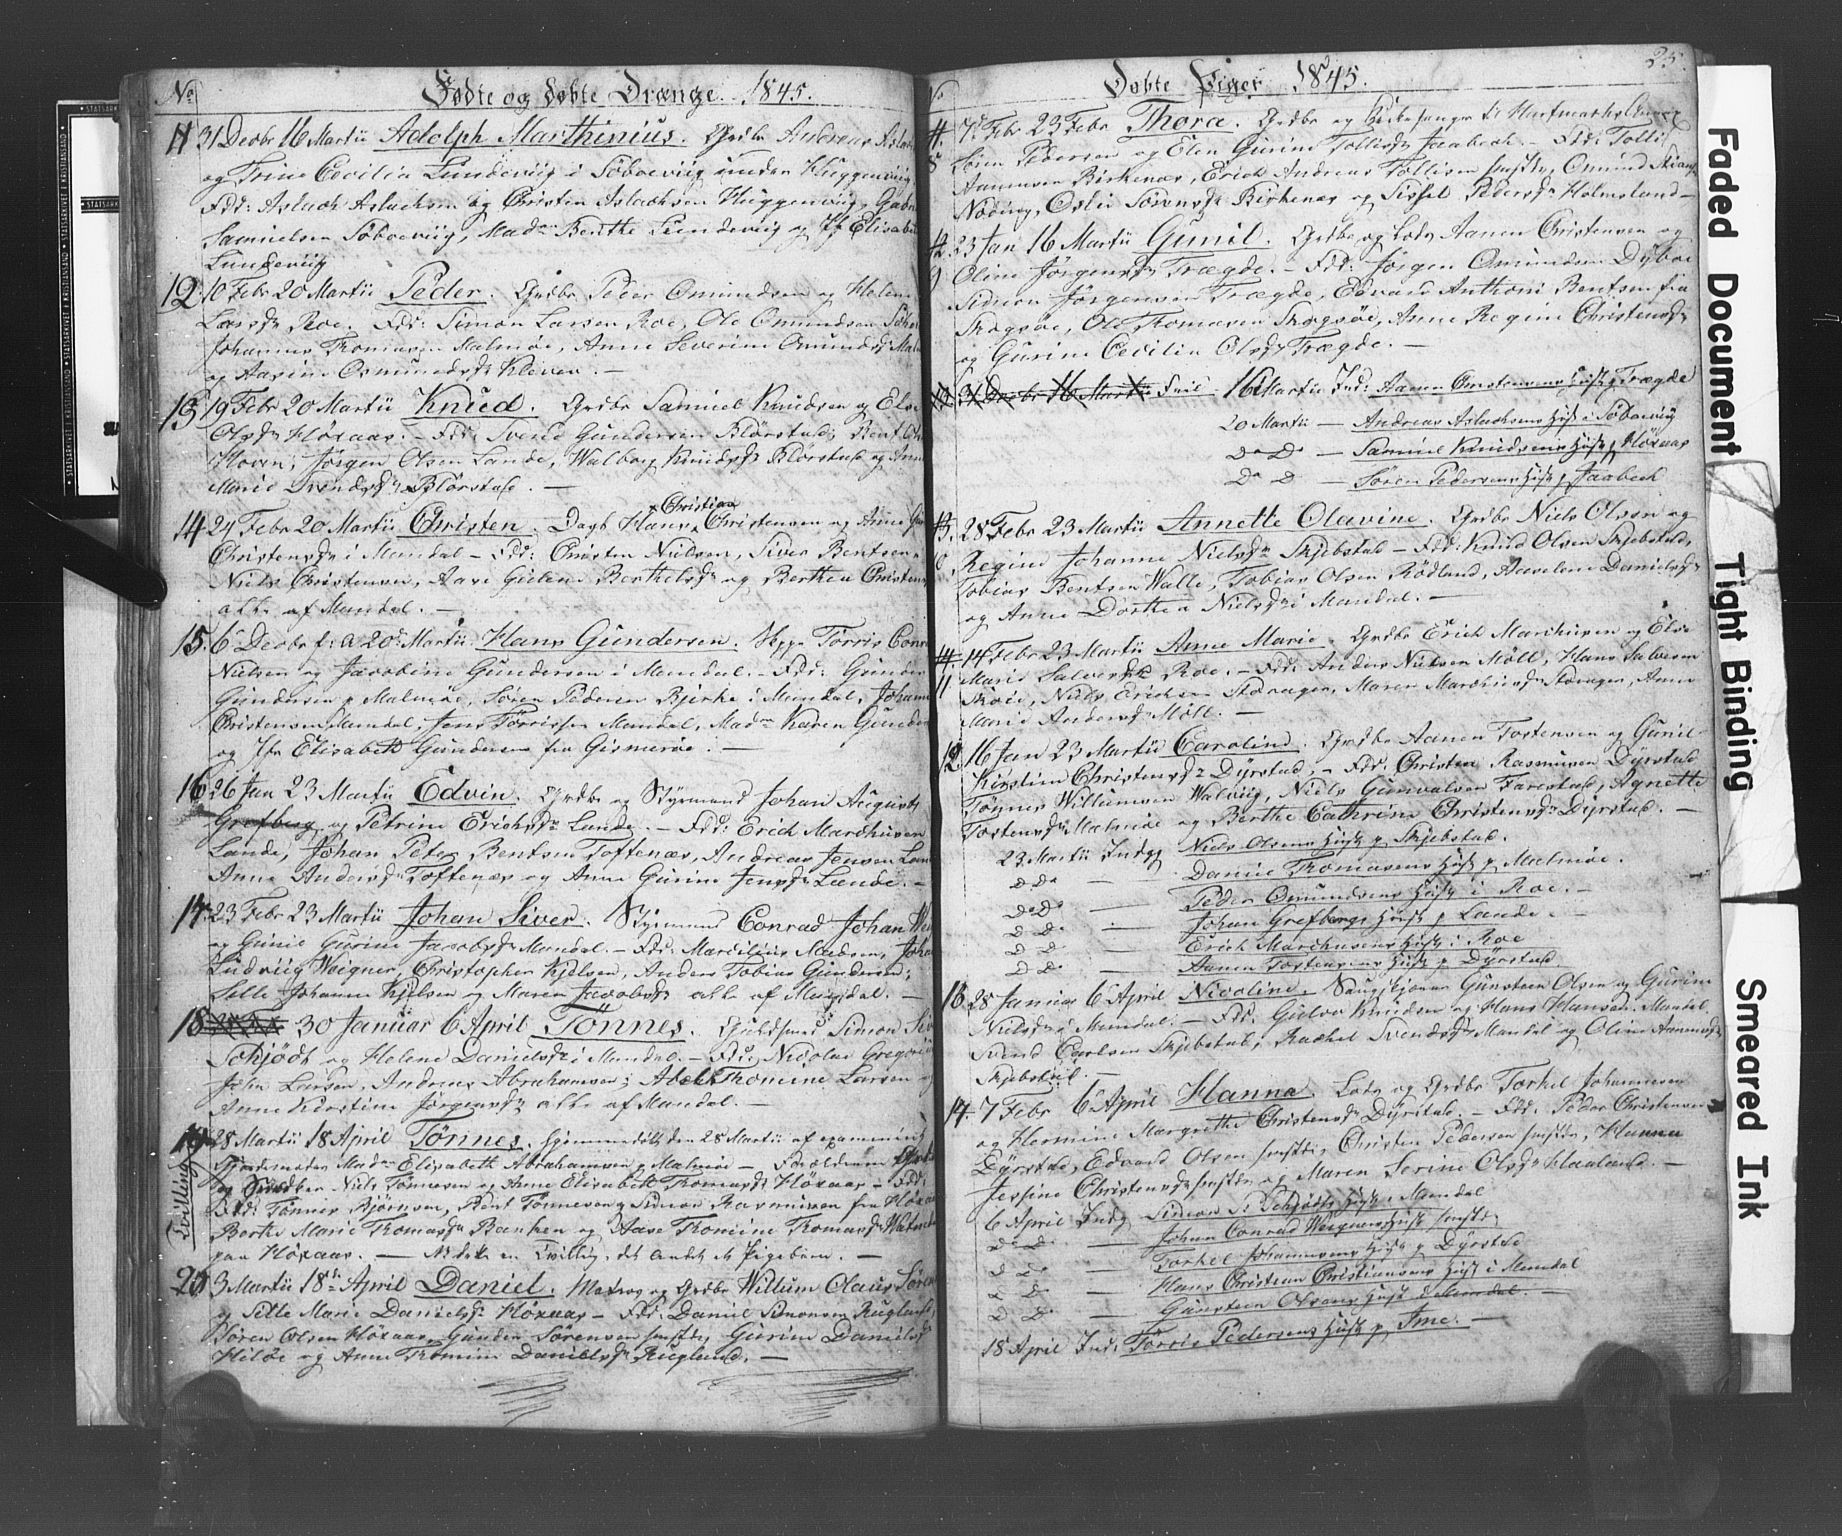 No Fødte og døbte Drænge. 1845.
11 31 Decbr 16 Martii Adolph Marthinius. Grdbr Andreas
og Trine Cecilia Lundeviig i Søboeviig under Huggenviig,
Fdd: Aslach Aslachsen og Christen Aslachsen Huggenviig,
Samuelsen Søboeviig, Mad. Berthe Lundeviig og Jf Elisabeth
Lundeviig
12. 10 Febr 20 Martii Peder. Grdbr Peder Omundsen og Helene
Larsd. Roe. Fdd: Simon Larsen Roe, Ole Omundsen
Johannes Thomasen Malmøe, Anne Severine Omundsd.
og Aasine Osmundsd. Kleven. —
13 19 Febr 20 Martii Knud. Grdbr Samuel Knudsen og
Olsd. Høxaas. — Fdd: Svend Gundersen Blørstad, Bent
Hoven, Jørgen Olsen Lande, Walborg Knudsd. Blørstad og
Marie Svendsd. Blørstad. —
14 24 Febr 20 Martii Christen. Dagl Hans Christian Christensen og Anne
Christensd. i Mandal — Fdd: Christen Nielsen, Siver Bentsen,
Niels Christensen, Aase Gieline Berthelsd. og Berthea
alle af Mandal. —
15. 6 Decbr f: A 20 Martii Hans Gundersen. Torris
Nielsen og Jacobine Gundersen i Mandal. — Fdd: Gunder
Gundersen p Malmøe, Søren Pedersen Bjerke i Mandal,
Christensen Mandal, Jens Tørrisen Mandal, Mad. Karen
og Jfr Elisabeth Gundersen fra Gismerøe. —
16 26 Jan 23 Martii Edvin. Grdbr og Styrmand Johan August
Grefberg og Petrine Erichsd. Lande. — Fdd: Erich Marchusen
Lande, Johan Peter Bentsen Toftenæs, Andreas Jensen
Anne Andersd. Toftenæs og Anne Gurine Jensd. Lande. —
17. 23 Febr 23 Martii Johan Siver. Styrmand Conrad Johan
og Gunil Gurine Jacobsd. Mandal. — Fdd: Marcilius Madsen,
Ludviig Weigner, Christopher Kjelsen, Anders Tobias Gundersen,
Sille Johanne Kjelsen og Maren Jacobsd. alle af Mandal. —
18 30 Januar 6 April Tønnes. Guldsmed Simon
Schjødt og Helene Danielsd. i Mandal — Fdd: Nicolai
John Larsen, Andreas Abrahamsen, Abel Thomine Larsen
Anne Kirstine Jørgensd. alle af Mandal. —
19 28 Martii 18 April Tønnes. hjemmedøbt den 28 Martii af examineret
Jordemoder Mad. Elisabeth Abrahamsen p Malmøe — Forældrene
og Niels Tønnesen og Anne Elisabeth Thomasd. Høxaas —
Fdd: Tønnes Bjørnsen, Bent Tønnesen, Simon Rasmussen fra
Berthe Marie Thomasd. Banken og Aase Thomine Thomasd.
paa Høxaas. — NB dette en Tvilling, det andet et Pigebarn. —
Tvilling
20 3 Martii 18 April Daniel. Matros og Grdbr Willum Olaus
og Sille Marie Danielsd. Høxaas — Fdd: Daniel Simonsen Ruglund,
Søren Olsen Høxaas, Gunder Sørensen smstds, Gurine Danielsd.
Hiløe og Anne Thomine Danielsd. Ruglund. —
No Døbte Piger 1845.
25.
7 Febr 23 Febr Thora. Grdbr og Kirkesanger til
Søren Pedersen og Elen Gurine Tollisd. Jaabech. — Fdd:
Aanensen Birkenæs, Erich Andreas Tollisen smstds, Omund
Nøding, Oslie Sørensd. Birkenæs og Sissel Pedersd. Holmsland —
9 23 Jan 16 Martii Gunil. Grdbr og Lods Aanen Christensen og
Oline Jørgensd. Trægde. — Fdd: Jørgen Omundsen Dybøe
Simon Jørgensen Trægde, Edvard Anthoni Bentsen fra
Skogsøe, Ole Thomasen Skogsøe, Anne Regine Christensd.
og Gurine Cecilia Olsd. Trægde. —
16 Martii Ind: Aanen Christensens Hust p Trægde
20 Martii — Andreas Aslachsens Hust i Søboeviig
Do Do — Samuel Knudsens Hust p Høxaas
Do D — Søren Pedersens Hust p Jaabech
10 28 Febr 23 Martii Annette Olavine. Grdbr Niels Olsen og
Regine Johanne Nielsd. Skjebstad — Fdd: Knud Olsen Skjebstad,
Tobias Bentsen Walle, Tobias Olsen Rødland, Aavelene Danielsd.
og Anne Dorthea Nielsd. i Mandal. —
11 14 Febr 23 Martii Anne Marie. Grdbr Erich Marchusen og Else
Marie Salvesd. Roe. — Fdd: Anders Nielsen Møll, Hans Salvesen
Skøie, Niels Erichsen Støragen, Maren Marchusd. Støragen, Anne
Marie Andersd. Møll. —
12. 16 Jan 23 Martii Caroline. Grdbr Aanen Tostensen og Gunil
Kirstine Christensd. Dyrstad. — Fdd: Christen Rasmusen Dyrstad
Tønnes Willumsen Walviig, Niels Gunvalsen Farestad, Agnette
Tostensd. Malmøe og Berthe Cathrine Christensd. Dyrstad. —
23 Martii Indg Niels Olsens Hust p Skjebstad.
D Do — Daniel Thomasens Hust p Malmøe.
Do Do — Peder Omundsens Hust i Roe. —
D Do — Johan Grefbergs Hust p Lande. —
D Do — Erich Marchusens Hust i Roe
D Do — Aanen Tostensens Hust p Dyrstad
13. 28 Januar 6 April Nicoline. Gunsteen Olsen og Gurine
Nielsd. i Mandal. — Fdd: Gielov Knudsen og Hans Hansen Mandal
Svend Carlsen Skjebstad, Rachel Svendsd. Mandal og Oline Aanensd.
Skjebstad. —
14. 7 Febr 6 April Hanna. Lods og Grdbr Torkel Johannesen
og Hermine Margrethe Christensd. Dyrstad. — Fdd: Peder Christensen
Dyrstad, Edvard Olsen smstds, Christen Pedersen smstds, Hanna
Jessine Christensd. smstds og Maren Serine Olsd. Haaland. —
6 April Indg Simon S. Schjødts Hust i Mandal
Do Do — Johan Conrad Weigners Hust smstds
D Do — Torkel Johannesens Hust p Dyrstad
D Do — Hans Christian Christiansens Hust i Mandal
D Do — Gunsteen Olsens Hust i Mandal. —
18 April Ind: Tørris Pedersens Hust p Ime. —
Faded Document
Tight Binding
Smeared Ink